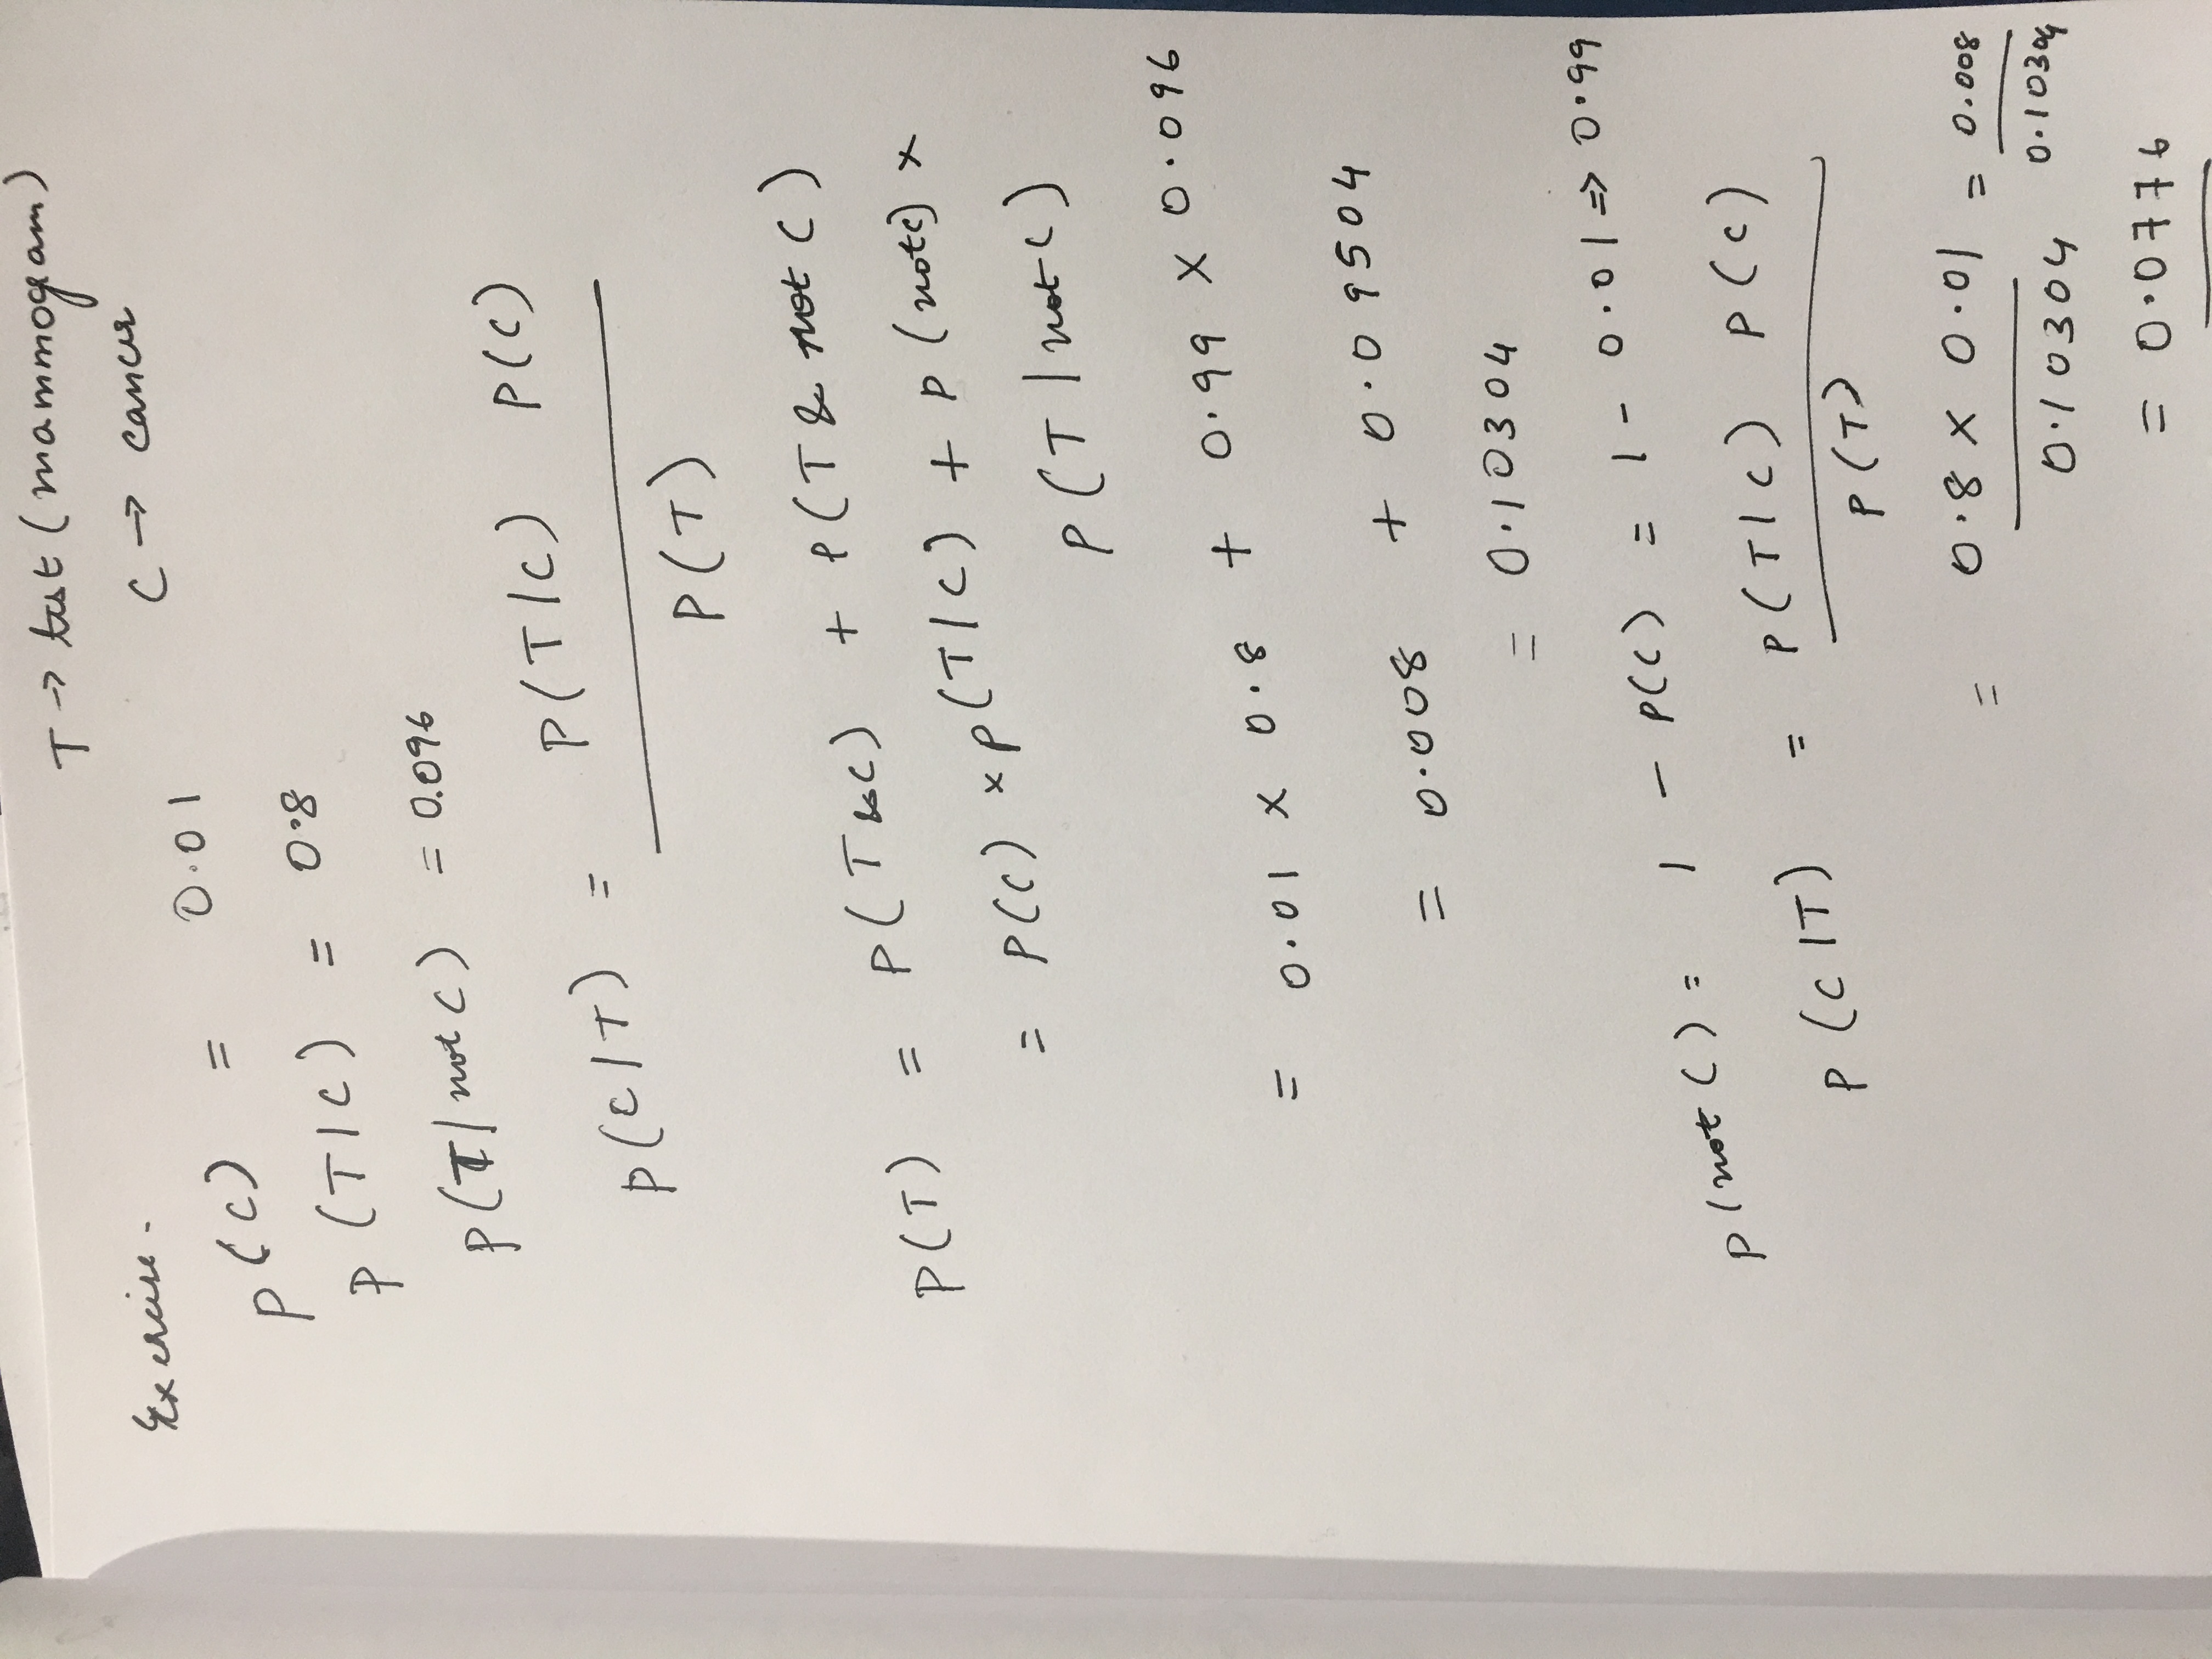 T → test (mammogram)
Exercise.
C → cancer
P(C) = 0.01
P(T|C) = 0.8
P(T|not C) = 0.096
P(C|T) = P(T|C) P(C)
P(T)
P(T) = P(T & C) + P(T & not C)
= P(C) × P(T|C) + P(not C) ×
P(T | not C)
= 0.01 × 0.8 + 0.99 × 0.096
= 0.008 + 0.09504
= 0.10304
P(not C) = 1 - P(C) = 1 - 0.01 ⇒ 0.99
P(C|T) = P(T|C) P(C)
P(T)
= 0.8 × 0.01 = 0.008
0.10304 0.10304
= 0.0776